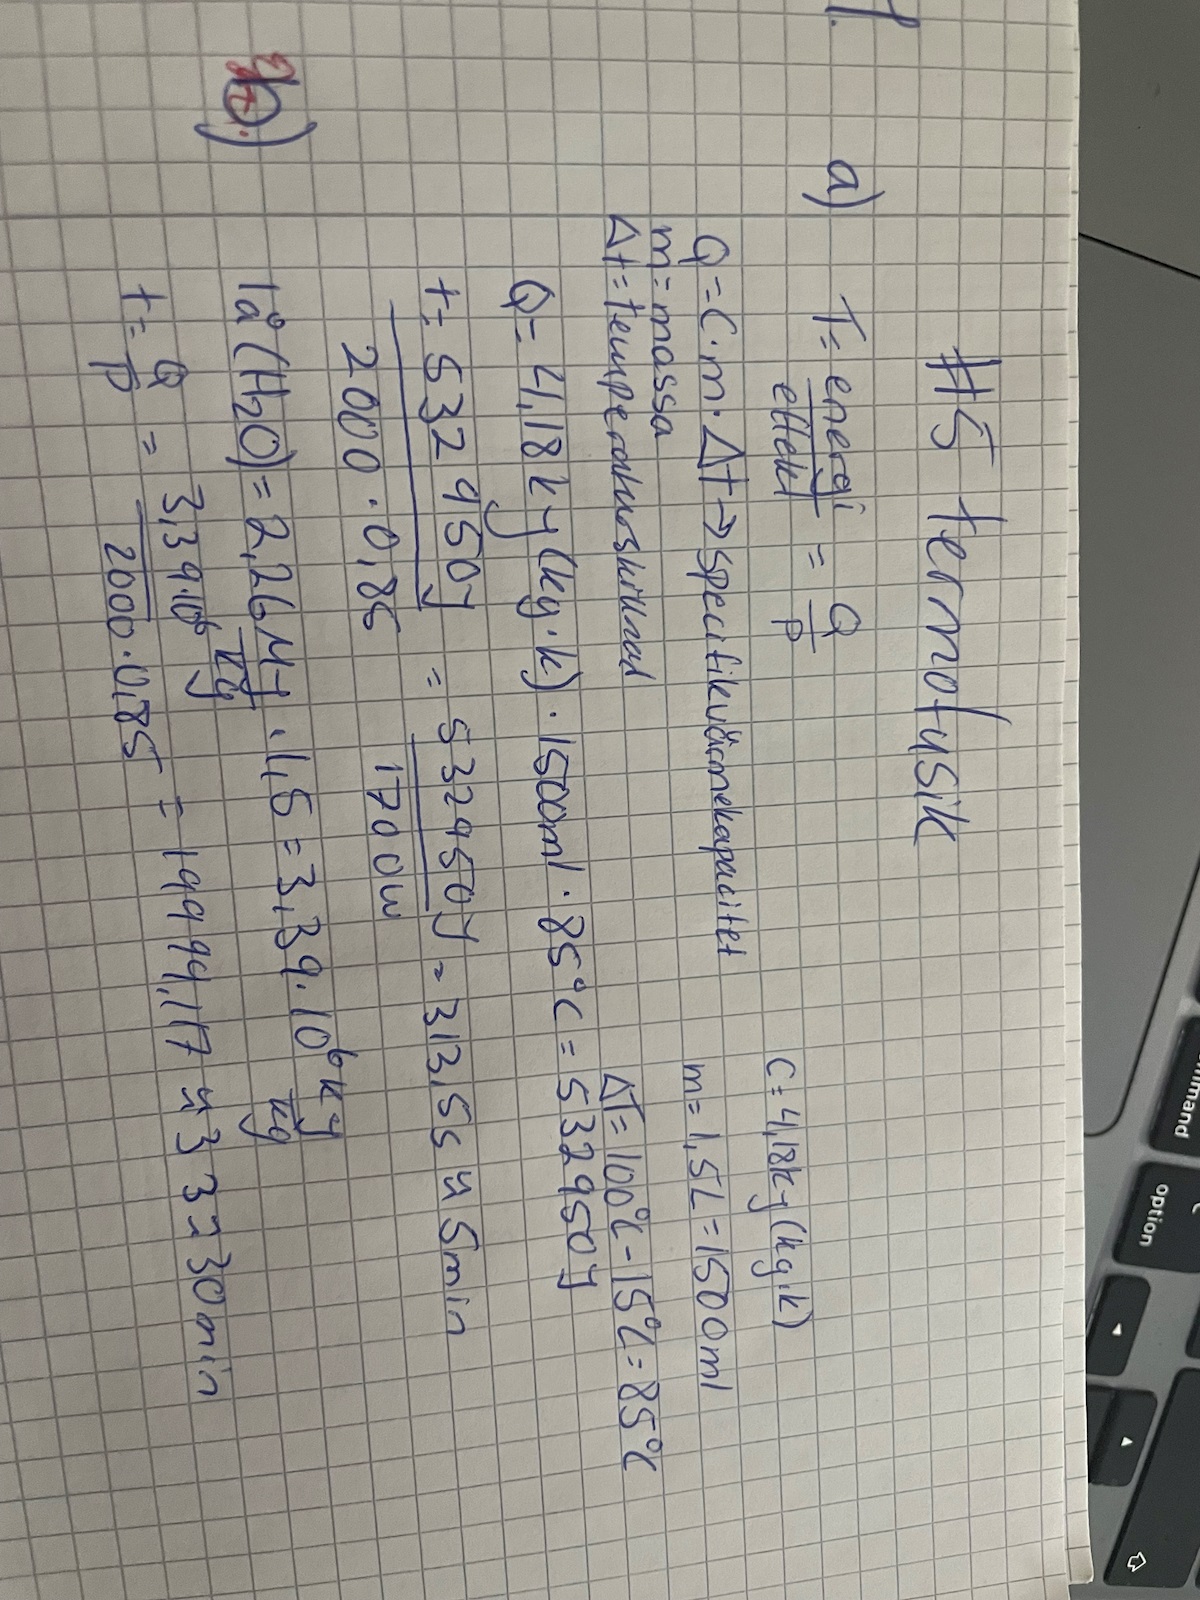 #5 termofusik
1.
a) T= energi/effekt = Q/P
C=4,18kJ(kg.k)
Q=C·m·Δt→specifikvärmekapacitet
m=1,5L=1500ml
m=massa
Δt=temperaturskillnad
ΔT=100°C-15°C=85°C
Q=4,18kJ(kg·k)·1500ml·85°C=532950J
t=532950J/2000·0,85 = 532950J/1700w = 313,5s ≈ 5min
b) lå(H2O)=2,26MJ/kg·1,5=3,39·10^6 kJ/kg
t=Q/P = 3,39·10^6 J/2000·0,85 = 1994,117 ≈ 33 min
command
option